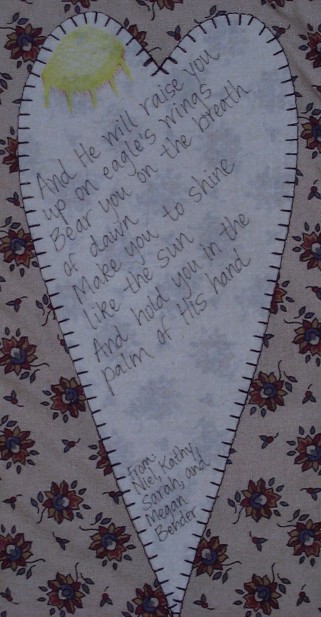 And He will raise you
up on eagle's wings
Bear you on the breath
of dawn
Make you to shine
like the sun
And hold you in the
palm of His hand
From:
Niel, Kathy,
Sarah, and
Megan
Bender